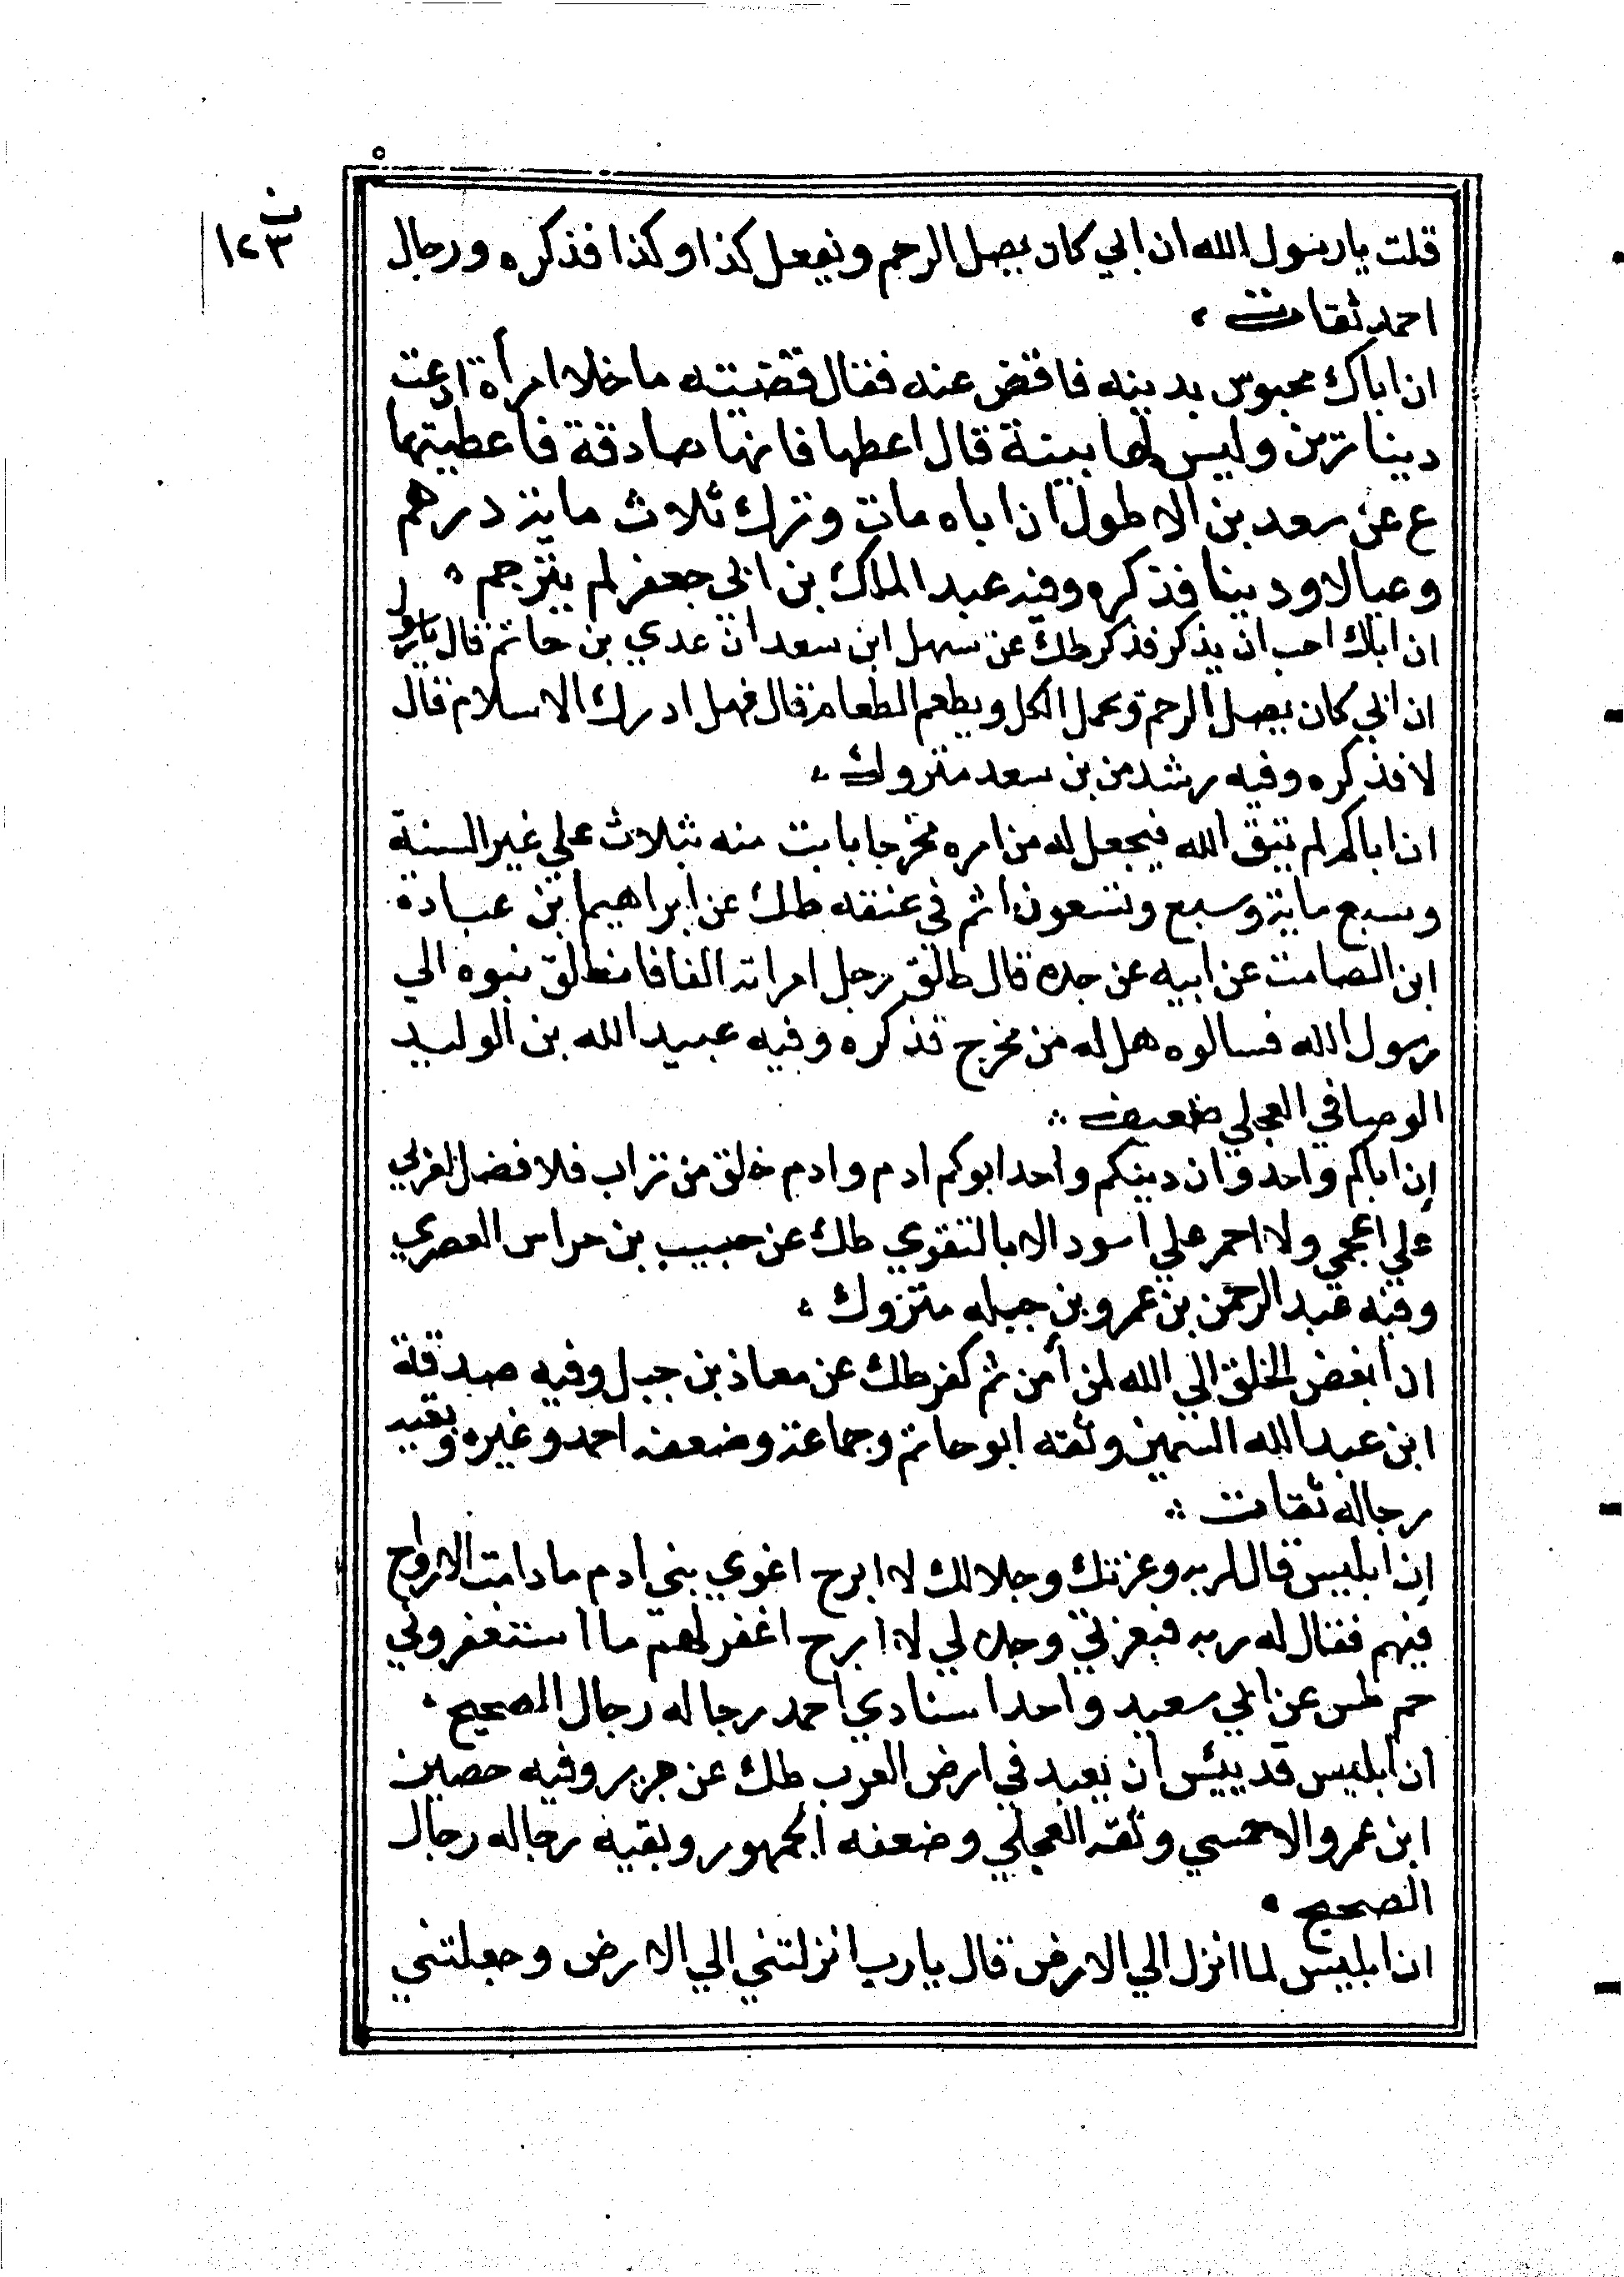 ن
١٢٣
قلت يا رسول الله ان ابي كان يصل الرحم ويفعل كذا وكذا فذكره ورجال
احمد ثقات
ان اباك محبوس بدينه فاقض عنه فقال قضيته ما خلا امرأة ادعت
دينارين وليس لها بينة قال اعطها فانها صادقة فاعطيتها
ع عن سعد بن الاطول ان اباه مات وترك ثلاث ماية درهم
وعيالا ودينا فذكره وفيه عبد الملك بن ابي جعفر لم يترجم
ان اباك احب ان يذكر فذكر طك عن سهل ابن سعد ان عدي بن حاتم قال
ان ابي كان يصل الرحم ويحمل الكل ويطعم الطعام قال فهل ادرك الاسلام قال
لا فذكره وفيه رشدين بن سعد متروك
ان اباكم لم يتق الله فيجعل له من امره مخرجا بانت منه بثلاث علي غير السنة
وسبع ماية وسبع وتسعون اثم في عنقه طك عن ابراهيم بن عبادة
ابن الصامت عن ابيه عن جده قال طلق رجل امراته الفا فانطلق بنوه الي
رسول الله فسالوه هل له من مخرج فذكره وفيه عبيد الله بن الوليد
الوصافي العجلي ضعيف
ان اباكم واحد وان دينكم واحد ابوكم ادم وادم خلق من تراب فلا فضل لعربي
علي اعجمي ولا احمر علي اسود الا بالتقوي طك عن حبيب بن حراس العصري
وفيه عبد الرحمن بن عمرو بن جبله متروك
ان ابغض الخلق الي الله لمن أمن ثم كفر طك عن معاذ بن جبل وفيه صدقة
ابن عبد الله السمين وثقه ابو حاتم وجماعة وضعفه احمد وغيره وبقيه
رجاله ثقات
ان ابليس قال لربه وعزتك وجلالك لا ابرح اغوي بني ادم ما دامت الارواح
فيهم فقال له ربه فبعزتي وجلالي لا ابرح اغفر لهم ما استغفروني
حم طس عن ابي سعيد واحد اسنادي احمد رجاله رجال الصحيح
ان ابليس قد يئس ان يعبد في ارض العرب طك عن جرير وفيه حصين
ابن عمرو الاحمسي وثقه العجلي وضعفه الجمهور وبقيه رجاله رجال
الصحيح
ان ابليس لما انزل الي الارض قال يا رب انزلتني الي الارض وجعلتني